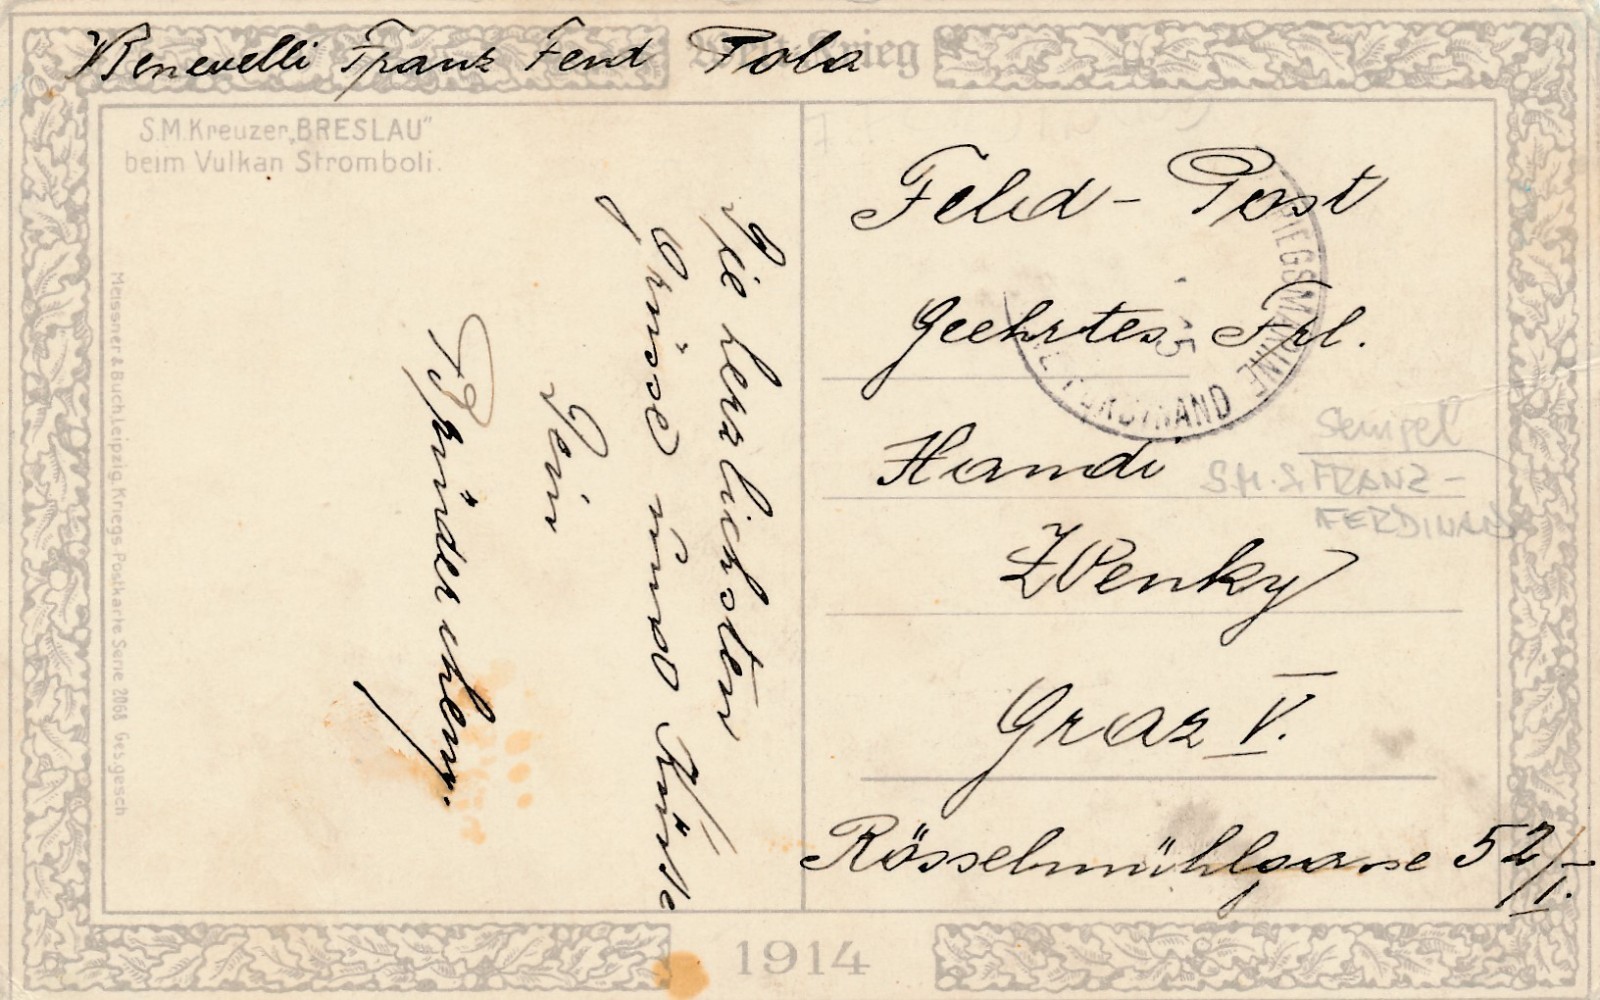 Franz Ferd Pola
S.M.Kreuzer „BRESLAU"
beim Vulkan Stromboli.
Meissner & Buch, Leipzig, Kriegs-Postkarte Serie 2068 Ges. gesch
Die herzlichsten
Grüsse und Küsse
Dein
Feld-Post
Geehrtes Frl.
Handi
Wenky
Graz V.
Rösselmühlgasse 52/I.
KRIEGSMARINE
FERDINAND
15
Stempel
S.M.S. FRANZ-
FERDINAND
1914